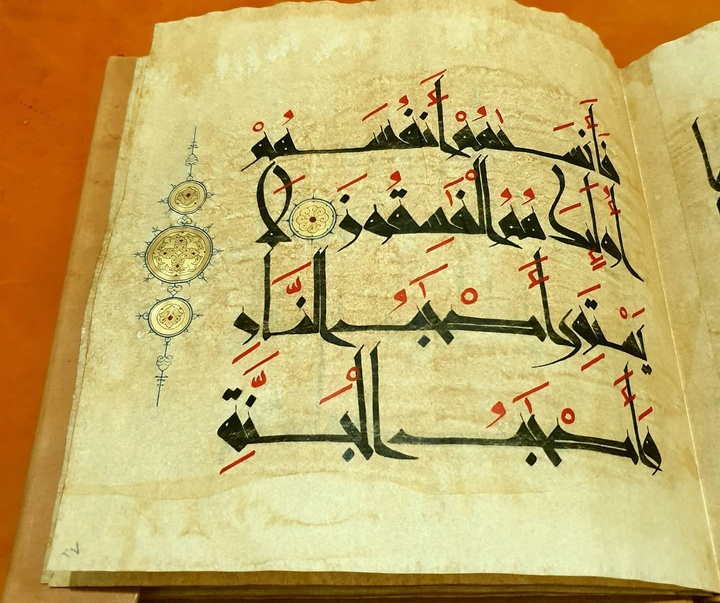 فَأَنسَىٰهُمْ أَنفُسَهُمْ
أُولَٰئِكَ هُمُ الْفَٰسِقُونَ لَا
يَسْتَوِي أَصْحَٰبُ النَّارِ
وَأَصْحَٰبُ الْجَنَّةِ